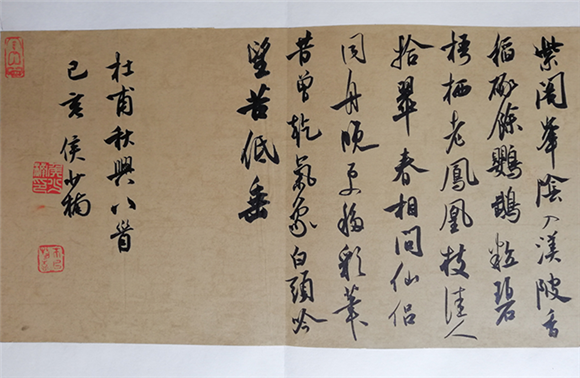 紫閣峯陰入渼陂香
稻啄餘鸚鵡粒碧
梧栖老鳳凰枝佳人
拾翠春相問仙侣
同舟晚更移彩筆
昔曾乾氣象白頭吟
望苦低垂
杜甫秋興八首
己亥 侯少楠